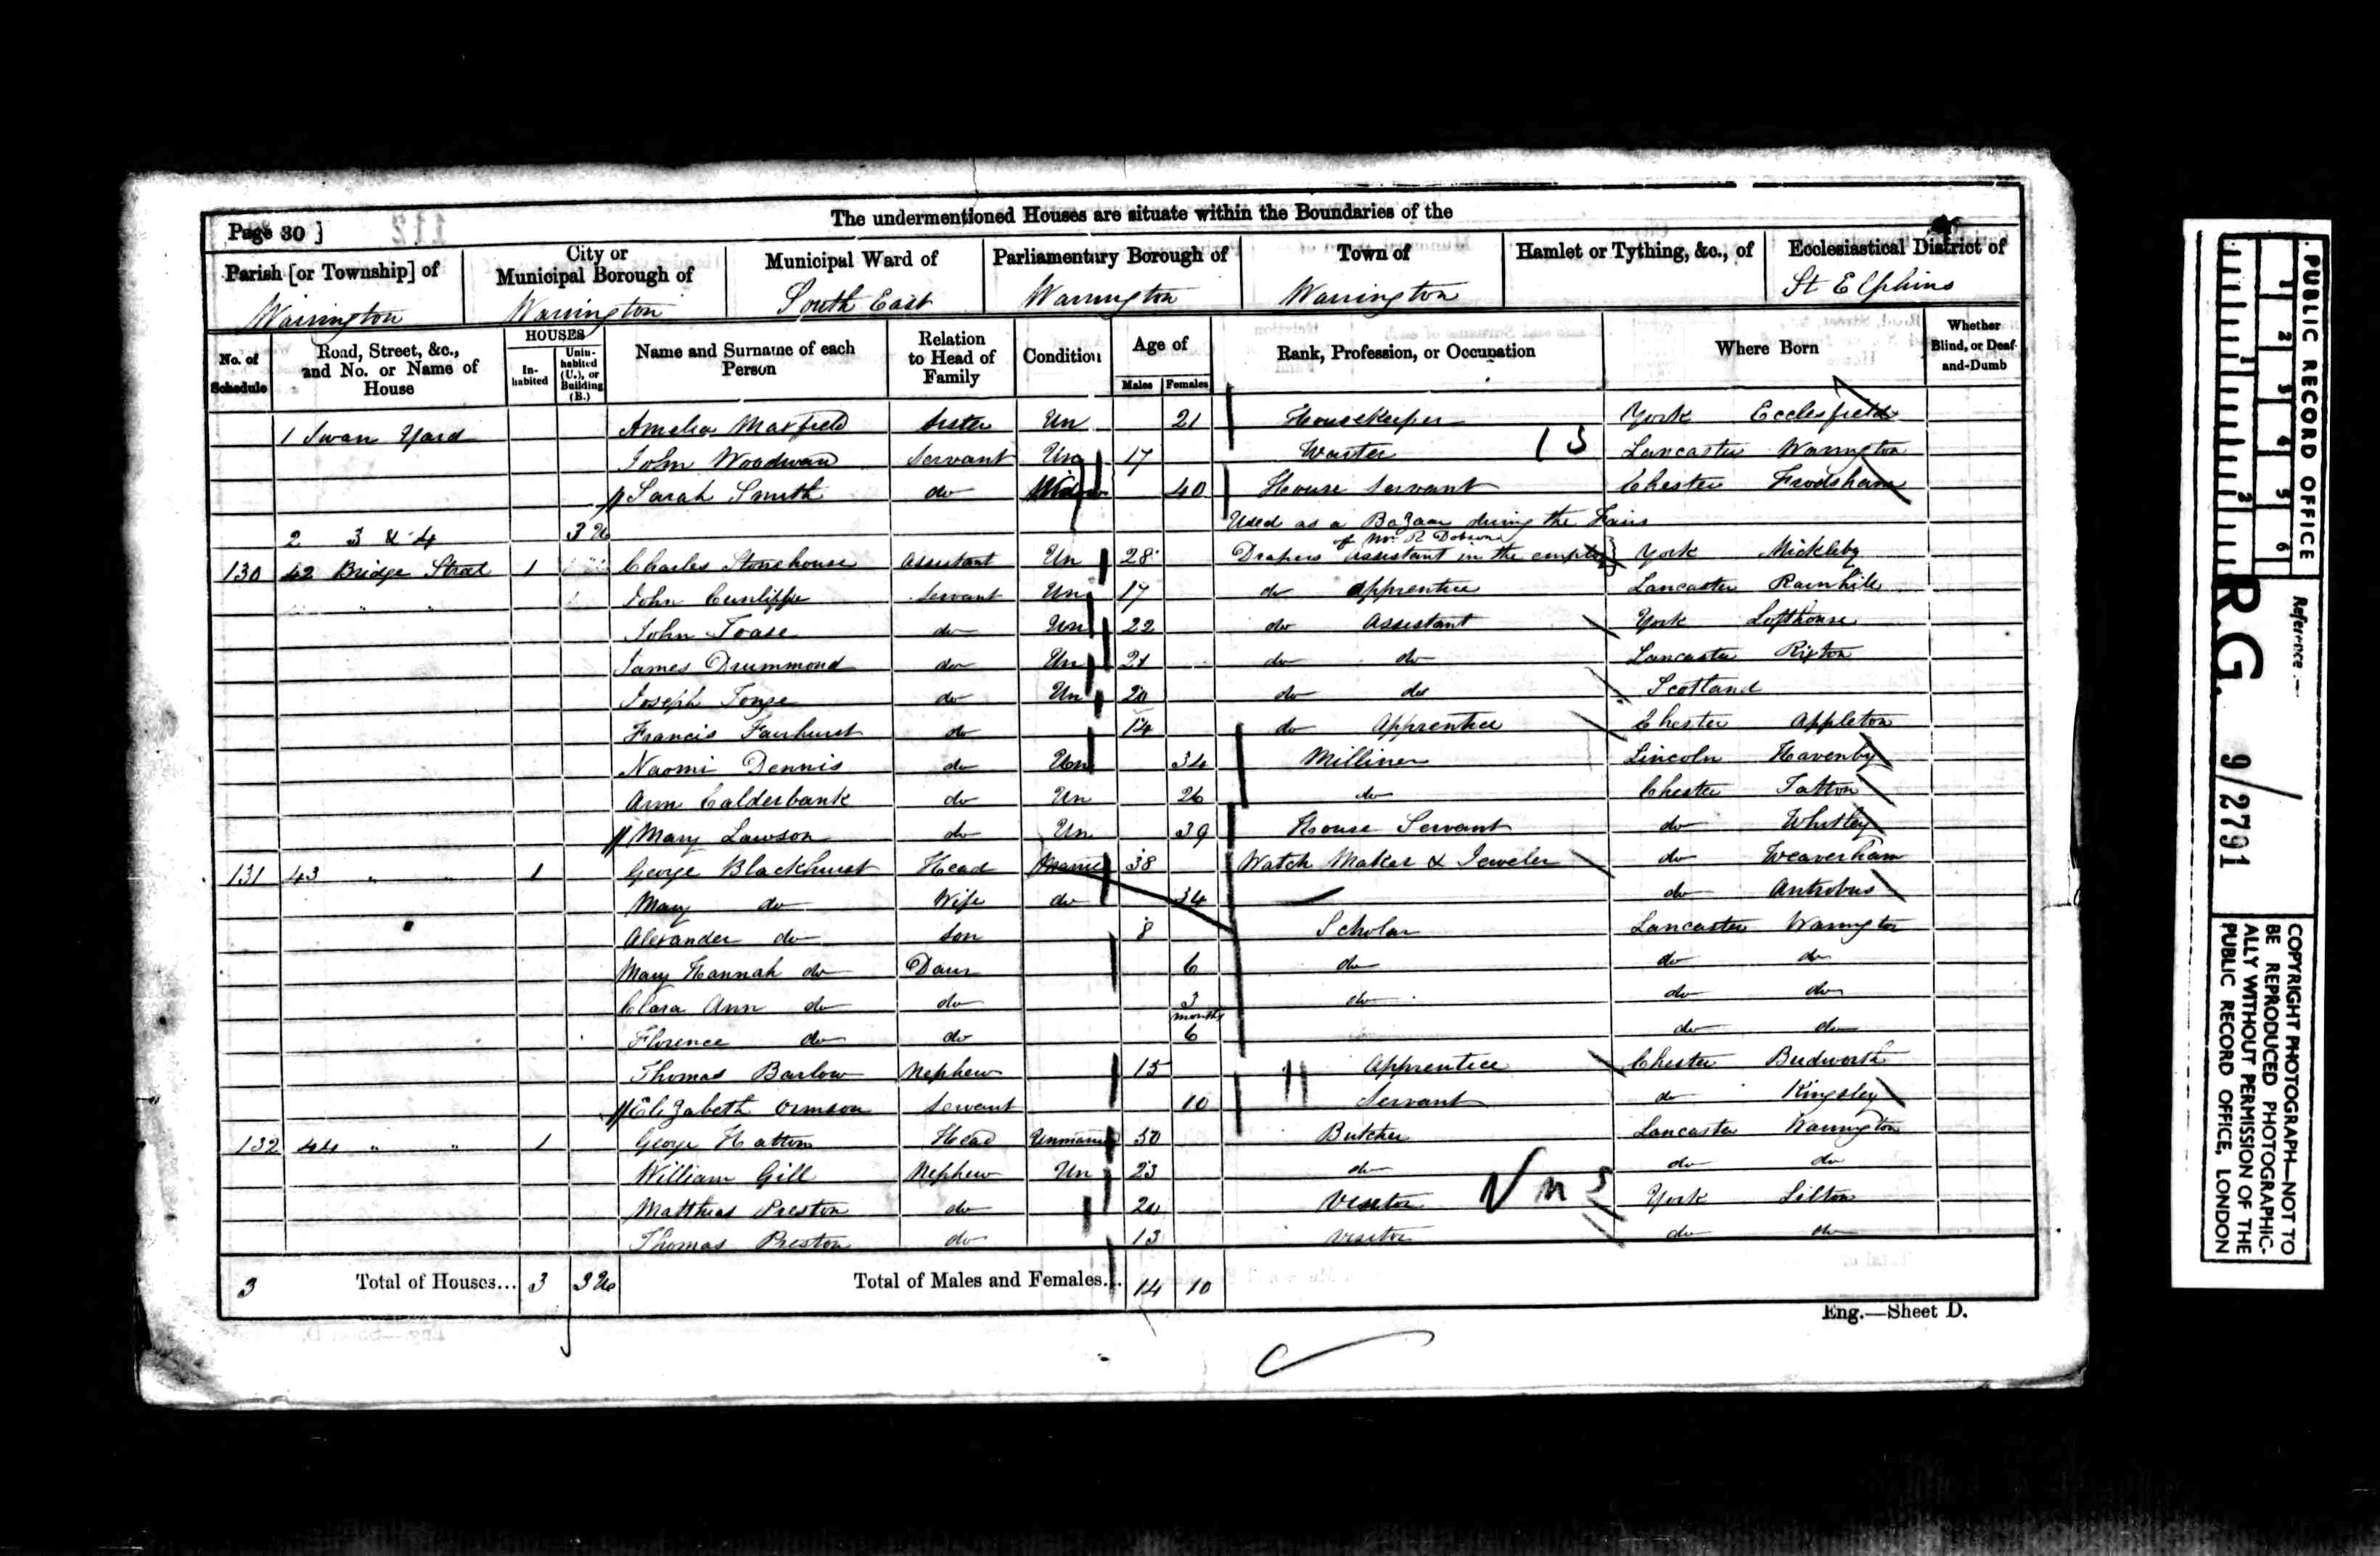 Page 30 ]
The undermentioned Houses are situate within the Boundaries of the
Parish [or Township] of
City or Municipal Borough of
Municipal Ward of
Parliamentary Borough of
Town of
Hamlet or Tything, &c., of
Ecclesiastical District of
Warrington Warrington South East Warrington Warrington St Elphins
No. of Schedule
Road, Street, &c., and No. or Name of House
HOUSES
In-habited
Unin-habited (U.), or Building (B.)
Name and Surname of each Person
Relation to Head of Family
Condition
Age of
Males Females
Rank, Profession, or Occupation
Where Born
Whether Blind, or Deaf-and-Dumb
1 Swan Yard Amelia Maxfield Sister Un 21 Housekeeper York Ecclesfield
John Woodward Servant Un 17 Waiter Lancaster Warrington
Sarah Smith do 40 House Servant Chester Frodsham
2 3 & 4 3 U Used as a Bazaar during the Fairs
of Mr R Dobsons
130 42 Bridge Street 1 Charles Stonehouse Assistant Un 28 Drapers Assistant in the employ York Mickleby
" " John Cunliffe Servant Un 17 do Apprentice Lancaster Rainhill
John Toase do Un 22 do Assistant York Lofthouse
James Drummond do Un 21 do do Lancaster Rixton
Joseph Tonge do Un 20 do do Scotland
Francis Fairhurst do 14 do Apprentice Chester Appleton
Naomi Dennis do Un 34 Milliner Lincoln Navenby
Ann Calderbank do Un 26 do Chester Tatton
Mary Lawson do Un 39 House Servant do Whitley
131 43 " " 1 George Blackhurst Head Marrie 38 Watch Maker & Jeweler do Weaverham
Mary do Wife do 34 do Antrobus
Alexander do Son 8 Scholar Lancaster Warrington
Mary Hannah do Daur 6 do do do
Clara Ann do do 3 do do do
months
Florence do do 6 do do
Thomas Barlow Nephew 15 Apprentice Chester Budworth
Elizabeth Ormson Servant 10 Servant do Kingsley
132 44 " " 1 George Hatton Head Unmarrie 50 Butcher Lancaster Warrington
William Gill Nephew Un 23 do do do
Matthias Preston do 20 Visitor York Silton
Thomas Preston do 13 Visitor do do
3 Total of Houses... 3 3 U Total of Males and Females... 14 10
Eng.—Sheet D.
PUBLIC RECORD OFFICE
1 2 3 4 5 6
1 2
Reference:—
R.G. 9/2791
COPYRIGHT PHOTOGRAPH—NOT TO
BE REPRODUCED PHOTOGRAPHIC-
ALLY WITHOUT PERMISSION OF THE
PUBLIC RECORD OFFICE, LONDON